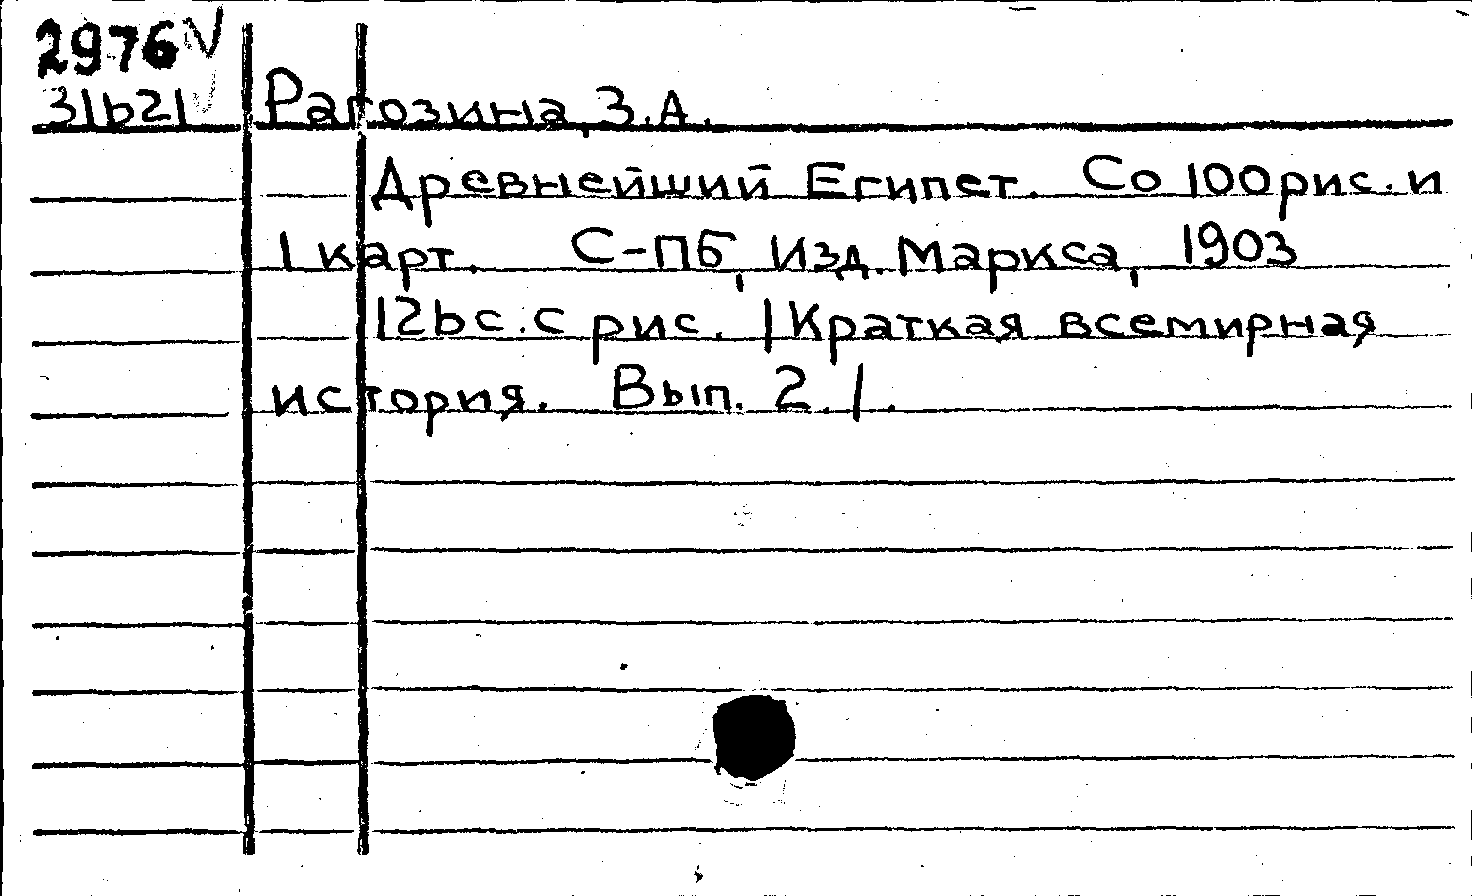 2976 V
31b21 Рагозина, З.А.
Древнейший Египет. Со 100 рис. и
1 карт. С-ПБ, Изд. Маркса, 1903
126 с. с рис. |Краткая всемирная
история. Вып. 2.|.